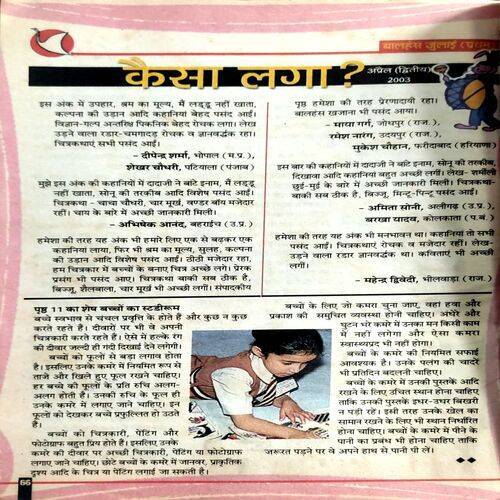 बालहंस जुलाई (प्रथम)
कैसा लगा?
अप्रैल (द्वितीय)
2003
इस अंक में उपहार, श्रम का मूल्य, मैं लड्डू नहीं खाता,
कल्पना की उड़ान आदि कहानियां बेहद पसंद आईं।
विज्ञान-गल्प अन्तरिक्ष पिकनिक बेहद रोचक लगा। लेख
उड़ने वाला रडार-चमगादड़ रोचक व ज्ञानवर्द्धक रहा।
चित्रकथाएं सभी पसंद आईं।
- दीपेन्द्र शर्मा, भोपाल (म.प्र.),
शेखर चौधरी, पटियाला (पंजाब)
मुझे इस अंक की कहानियों में दादाजी ने बांटे इनाम, मैं लड्डू
नहीं खाता, सोनू की तरकीब आदि विशेष पसंद आईं।
चित्रकथा - चाचा चौधरी, चार मूर्ख, वण्डर बॉय मजेदार
रहीं। चाय के बारे में अच्छी जानकारी मिली।
- अभिषेक आनंद, बहराईच (उ.प्र.)
हमेशा की तरह यह अंक भी हमारे लिए एक से बढ़कर एक
कहानियां लाया, फिर भी श्रम का मूल्य, सुलह, कल्पना
की उड़ान आदि विशेष पसंद आईं। ठीठी मजेदार रहा,
हम चित्रकार में बच्चों के बनाए चित्र अच्छे लगे। प्रेरक
प्रसंग भी पसंद आए। चित्रकथा बाकी सब ठीक है,
बिज्जू, शैलबाला, चार मूर्ख भी अच्छी लगीं। संपादकीय
पृष्ठ हमेशा की तरह प्रेरणादायी रहा।
बालहंस खजाना भी पसंद आया।
- माया गर्ग, जोधपुर (राज.),
रमेश नारंग, उदयपुर (राज.),
मुकेश चौहान, फरीदाबाद (हरियाणा)
इस बार की कहानियों में दादाजी ने बांटे इनाम, सोनू की तरकीब,
दिखावा आदि कहानियां बहुत अच्छी लगीं। लेख - शर्मीली
छुई-मुई के बारे में अच्छी जानकारी मिली। चित्रकथा-
बाकी सब ठीक है, बिज्जू, मिन्टू-पिन्टू पसंद आईं।
- अमिता सोनी, अलीगढ़ (उ.प्र.),
बरखा यादव, कोलकाता (प.बं.)
हमेशा की तरह यह अंक भी मनभावन था। कहानियां तो सभी
पसंद आईं। चित्रकथाएं रोचक व मजेदार रहीं। लेख-
उड़ने वाला रडार ज्ञानवर्द्धक था। कविताएं भी अच्छी
लगीं।
- महेन्द्र द्विवेदी, भीलवाड़ा (राज.)
पृष्ठ 11 का शेष बच्चों का स्टडीरूम
बच्चे स्वभाव से चंचल प्रवृत्ति के होते हैं और कुछ न कुछ
करते रहते हैं। दीवारों पर भी वे अपनी
चित्रकारी करते रहते हैं। ऐसे में हल्के रंग
की दीवार जल्दी ही गंदी दिखाई देने लगेगी।
बच्चों को फूलों से बड़ा लगाव होता
है। इसलिए उनके कमरे में नियमित रूप से
ताजे और खिले हुए फूल रखने चाहिएं।
हर बच्चे की फूलों के प्रति रुचि अलग-
अलग होती है। उनकी रुचि के फूल ही
उनके कमरे में लगाए जाने चाहिएं। इन
फूलों को देखकर बच्चे प्रफुल्लित हो उठते
हैं।
बच्चों को चित्रकारी, पेंटिंग और
फोटोग्राफ बहुत प्रिय होते हैं। इसलिए उनके
कमरे की दीवार पर अच्छी चित्रकारी, पेंटिंग या फोटोग्राफ
लगाए जाने चाहिए। छोटे बच्चों के कमरे में जानवर, प्राकृतिक
दृश्य आदि के चित्र या पेंटिंग लगाई जा सकती है।
बच्चों के लिए जो कमरा चुना जाए, वहां हवा और
प्रकाश की समुचित व्यवस्था होनी चाहिए। अंधेरे और
घुटन भरे कमरे में उनका मन किसी काम
में नहीं लगेगा और ऐसा कमरा
स्वास्थ्यप्रद भी नहीं होगा।
बच्चों के कमरे की नियमित सफाई
आवश्यक है। उनके पलंग की चादरें
भी प्रतिदिन बदलनी चाहिएं।
बच्चों के कमरे में उनकी पुस्तकें आदि
रखने के लिए उचित स्थान होना चाहिए,
ताकि उनकी पुस्तकें इधर-उधर बिखरी
न पड़ी रहें। इसी तरह उनके खेल का
सामान रखने के लिए भी स्थान निर्धारित
होना चाहिए। बच्चों के कमरे में पीने के
पानी का प्रबंध भी होना चाहिए ताकि
जरूरत पड़ने पर वे अपने हाथ से पानी पी लें।
66